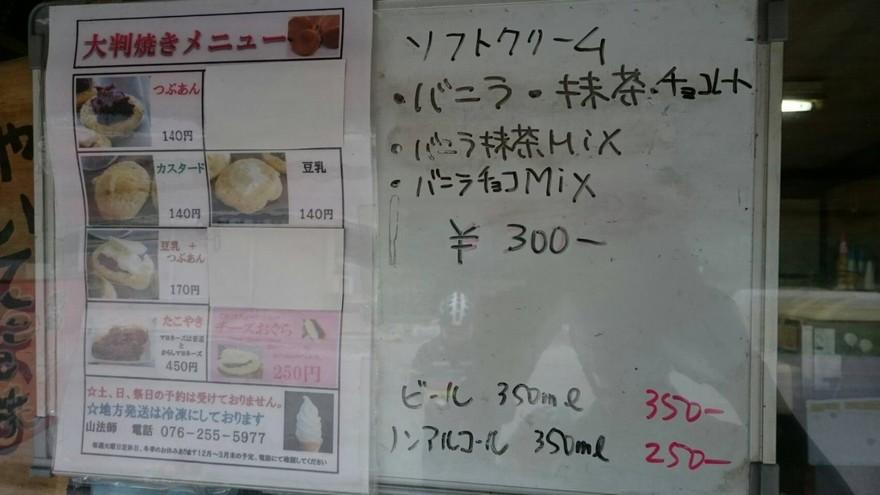 大判焼きメニュー
つぶあん
140円
カスタード
140円
豆乳
140円
豆乳 +
つぶあん
170円
たこやき
マヨネーズは普通
と
からしマヨネーズ
450円
チーズおぐら
250円
☆土、日、祭日の予約は受けておりません。
☆地方発送は冷凍にしております
山法師 電話 076-255-5977
毎週火曜日定休日、冬季のお休みあります12月~3月末の予定、電話にて確認してください
ソフトクリーム
・バニラ・抹茶・チョコレート
・バニラ抹茶MiX
・バニラチョコMiX
¥ 300-
ビール 350ml 350-
ノンアルコール 350ml 250-